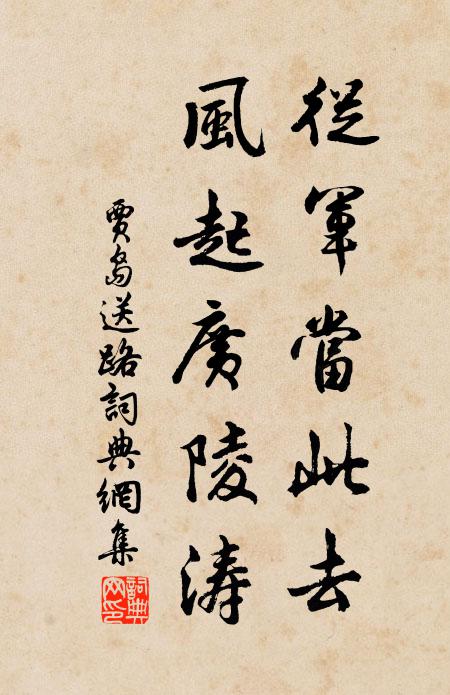 從軍當此去
風起廣陵涛
賈島送路詞典網集
詞典網印